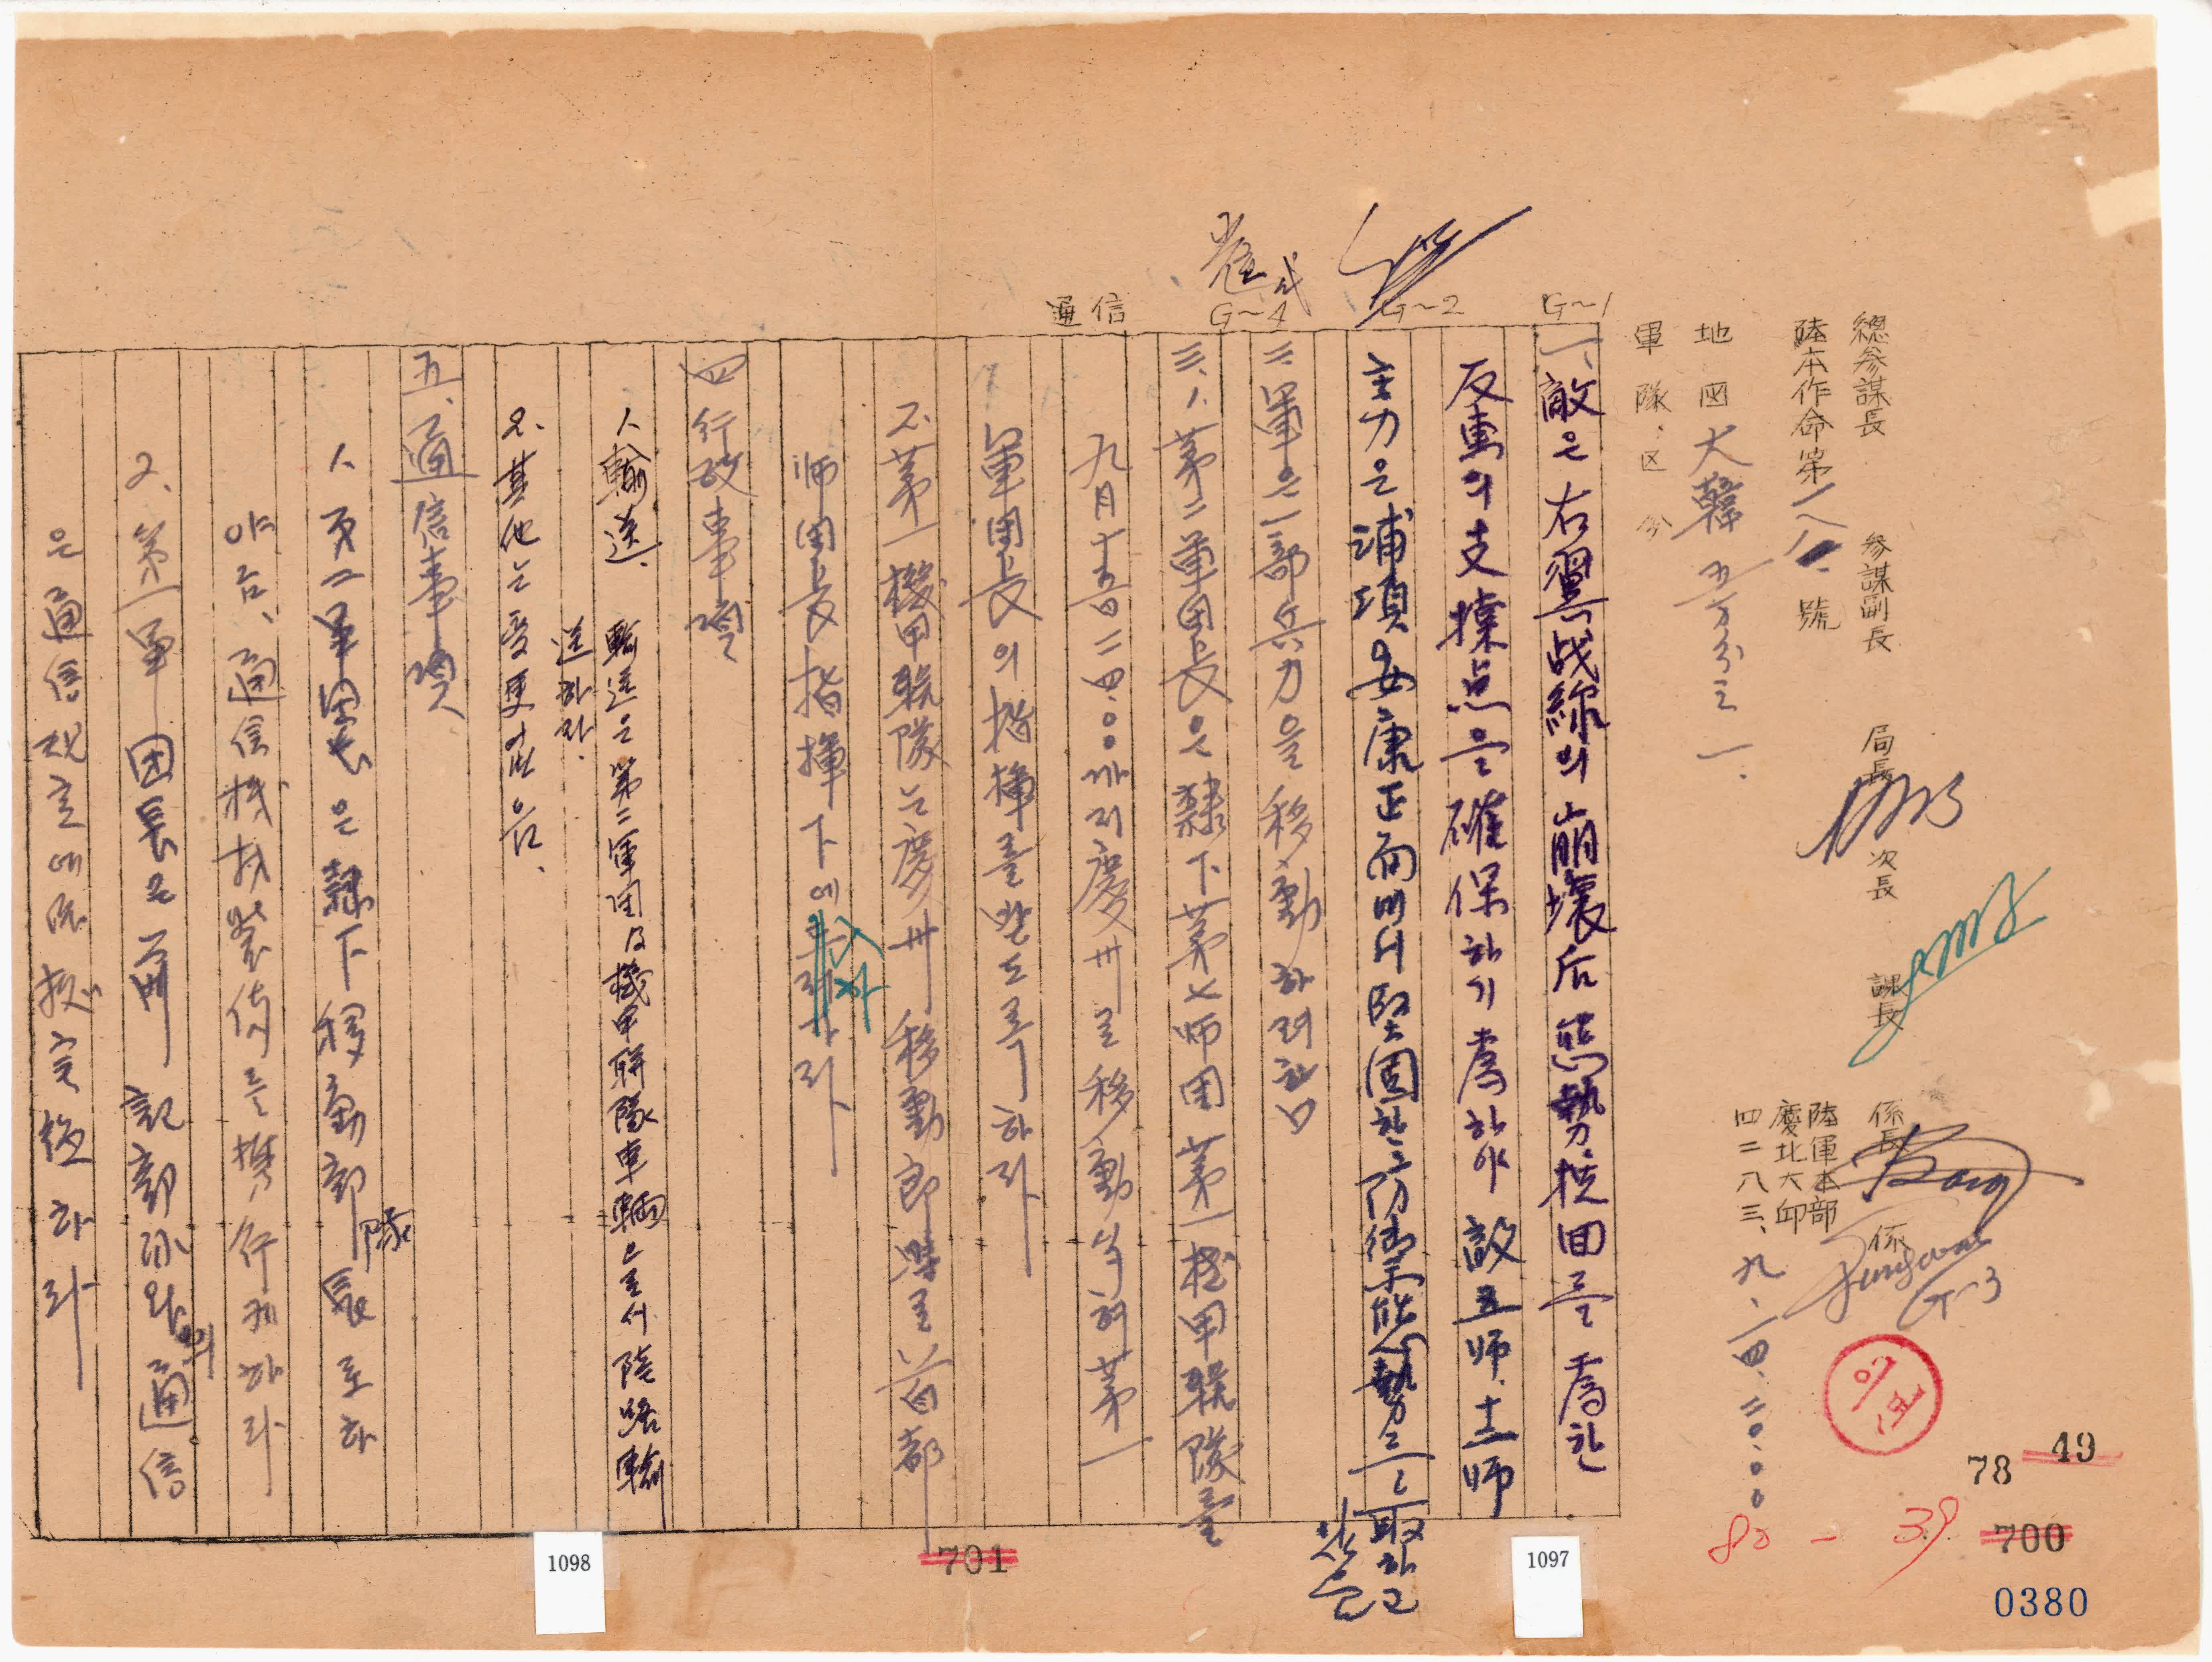 總參謀長 參謀副長 局長 次長 課長 係長 係
陸本作命第一八一號
陸軍本部
慶北大邱
四二八三、九、一四、二〇.〇〇
地図 大韓 五万分之一、
軍隊区分
G~1
G~2
G~4
通信
G-3
一、敵은 右翼战線의 崩壞后 態勢挽回를 爲한
反軍의 支撑点을 確保하기 爲하야 敵五师、十二师
主力은 浦項 安康 正面에서 堅固한 防禦態勢를 取하고
있음
二、軍은 一部 兵力을 移動하려 함
三、1、第二軍團長은 隷下 第七师團 第一機甲联隊를
九月十五日 二四.〇〇까지 慶州로 移動식혀 第一
軍團長의 指揮를 받도록 하라
2、第一機甲联隊는 慶州 移動 即時로 首都
师團長 指揮下에
四 行政事項
1、輸送、 輸送은 第二軍团及機甲联隊車輛으로서 陸路輸
送하라.
2、其他는 変更 없음、
五、通信事項
1、第二軍團長은 隷下 移動部隊長로 하
야금、通信機材裝備를 携行케 하라
2、第一軍 团長은 前記部隊와의 通信
은 通信規定에 依據 実施하라
78 49
80 - 39
700
701
0380
1097
1098